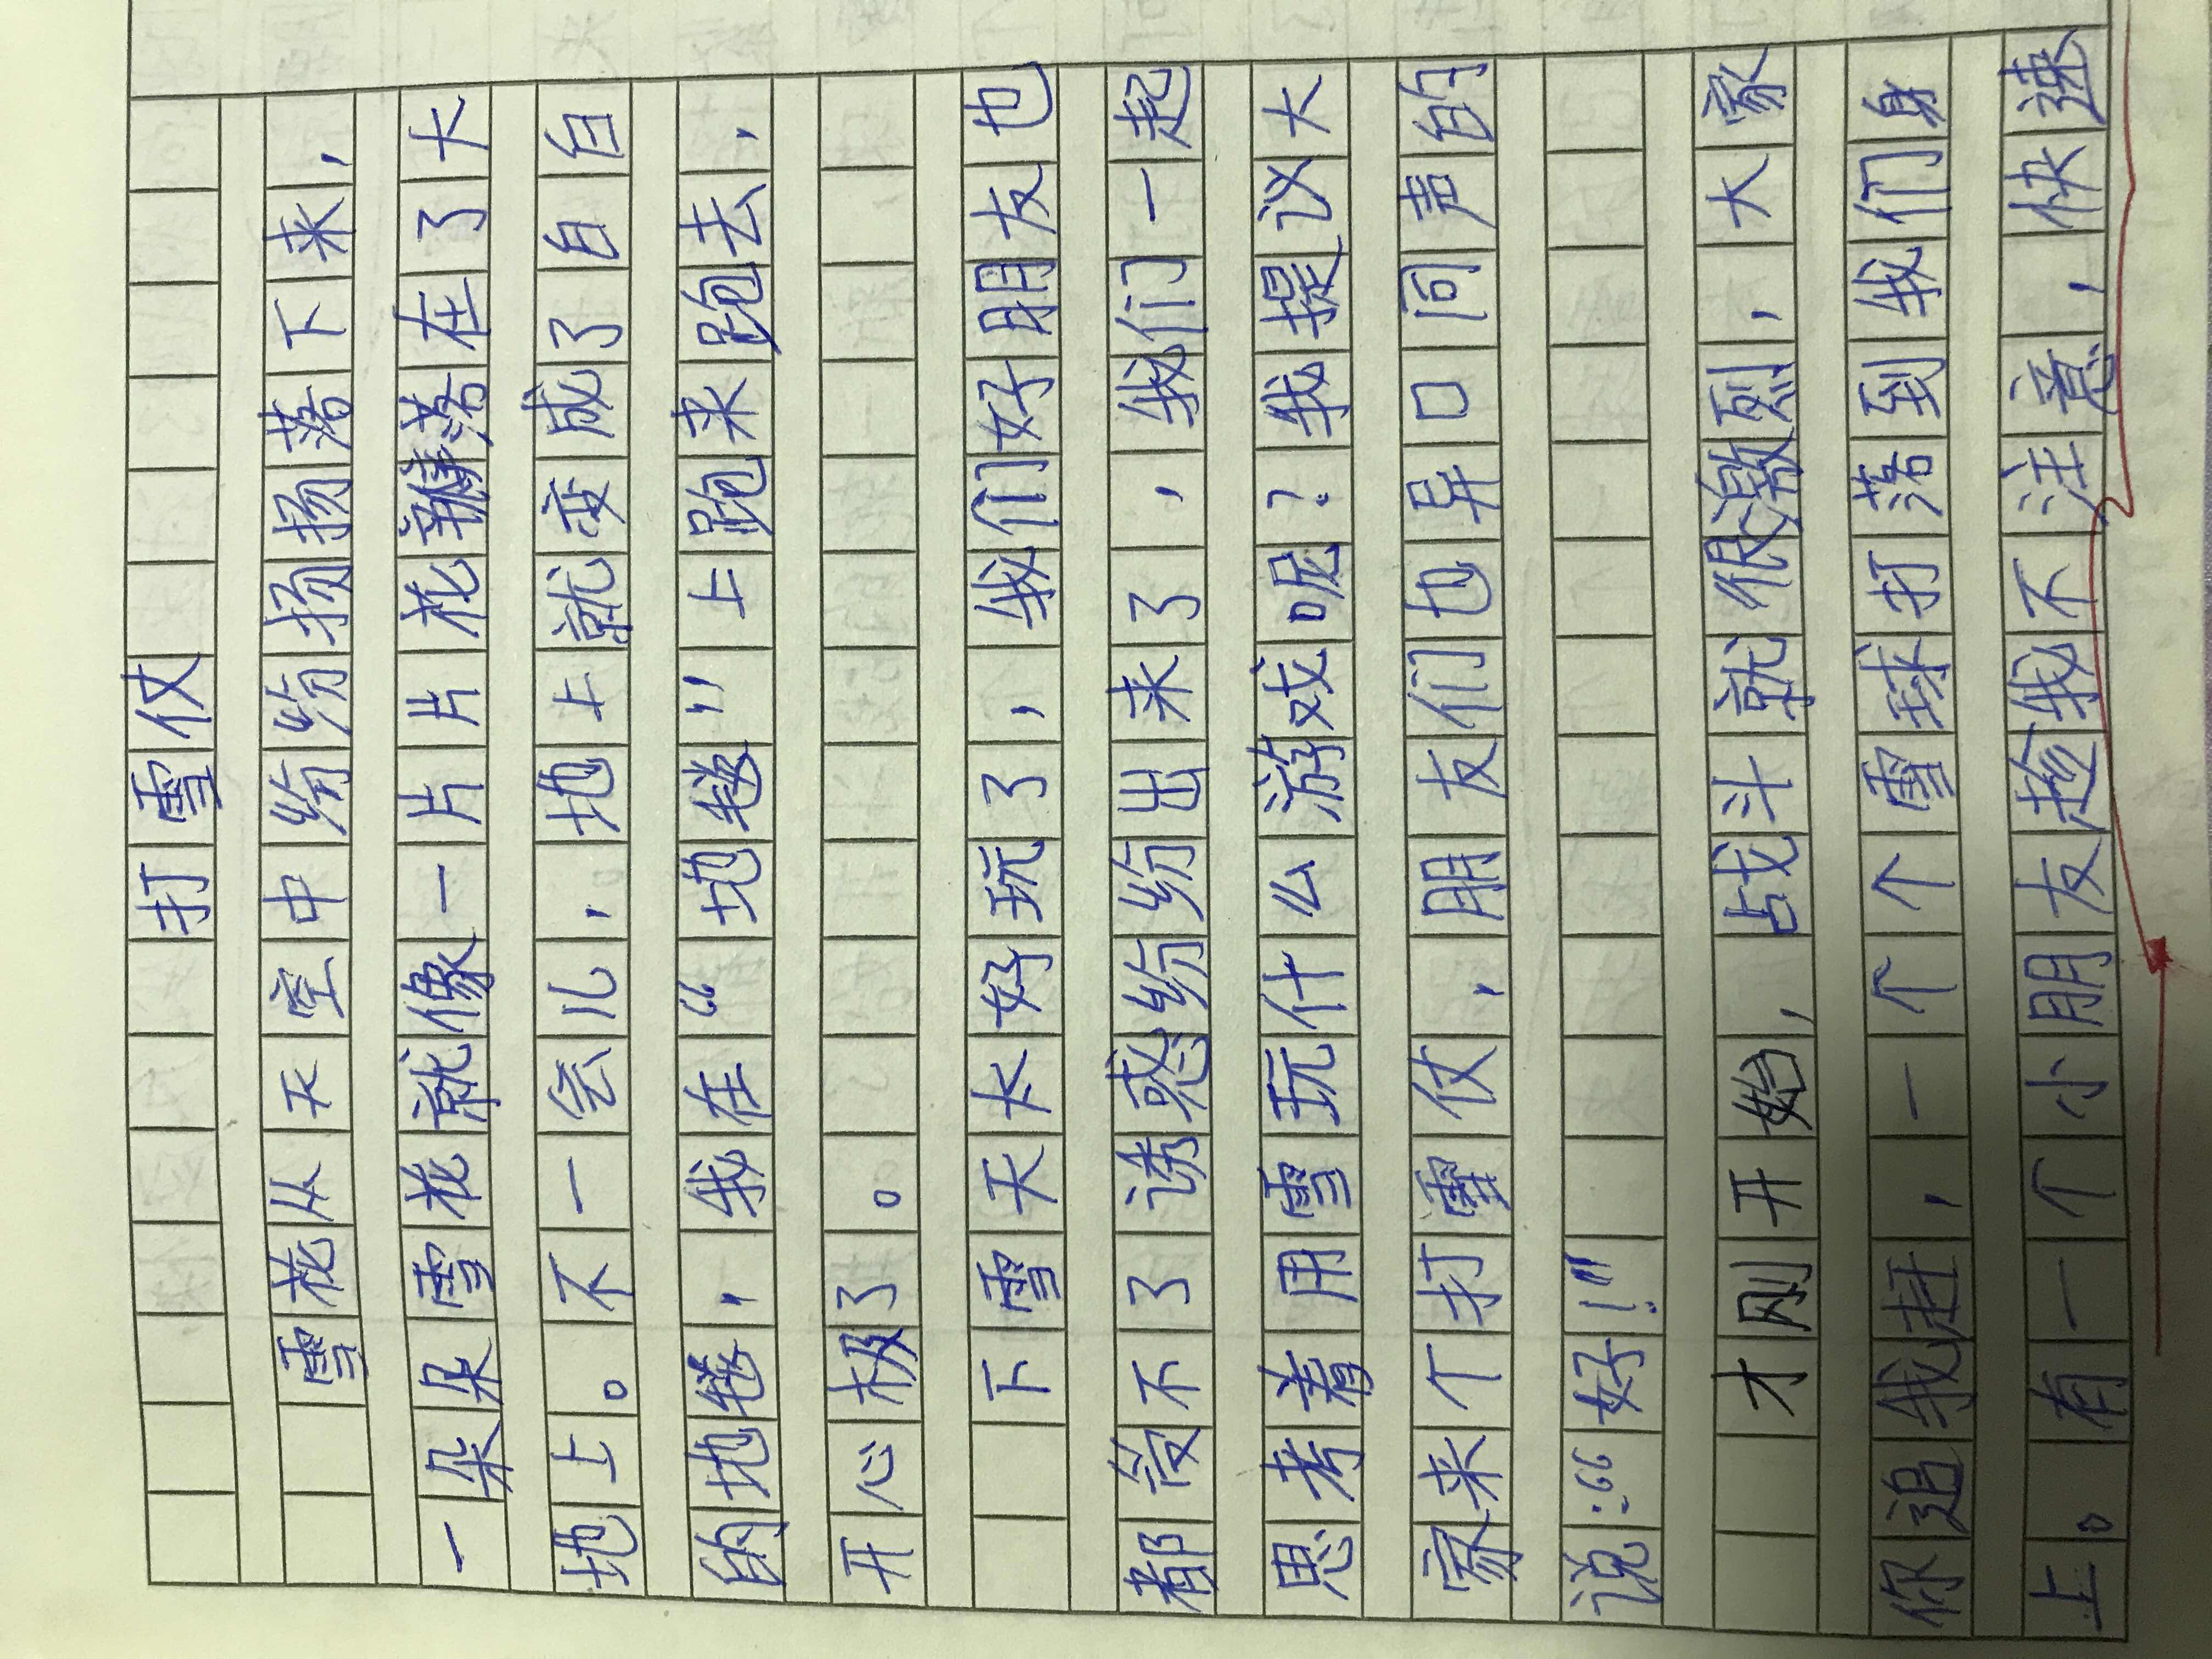 打雪仗
雪花从天空中纷纷扬扬落下来，
一朵朵雪花就像一片片花瓣落在了大
地上。不一会儿，地上就变成了白白
的地毯，我在“地毯”上跑来跑去，
开心极了。
下雪天太好玩了，我们好朋友也
都受不了诱惑纷纷出来了，我们一起
思考着用雪玩什么游戏呢？我提议大
家来个打雪仗，朋友们也异口同声的
说：“好！”
才刚开始，战斗就很激烈，大家
你追我赶，一个个雪球打落到我们身
上。有一个小朋友趁我不注意，快速